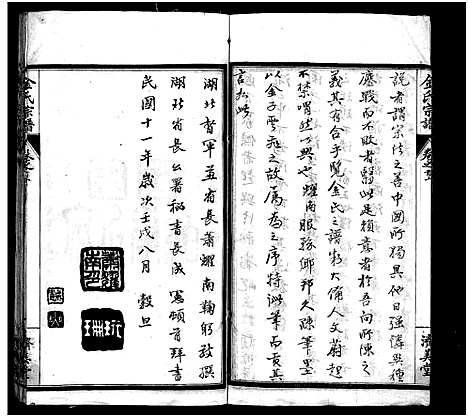 金氏宗譜
說者謂宗法之善中國所獨具他日強憐異種
鏖戰而不敗者醫此是賴意者於吾向所陳之
義其有合乎覽金氏譜牒大備人文蔚起
不禁喟然興也耀南服務鄉邦久疎筆墨
以金子雲飛之故屬為之序特泚筆而貢其
言如此
湖北督軍兼省長蕭耀南鞠躬敬撰
湖北省長公署秘書長成憲頓首拜書
民國十一年歲次壬戌八月 穀旦
蕭耀南印
珩珊
金氏宗譜